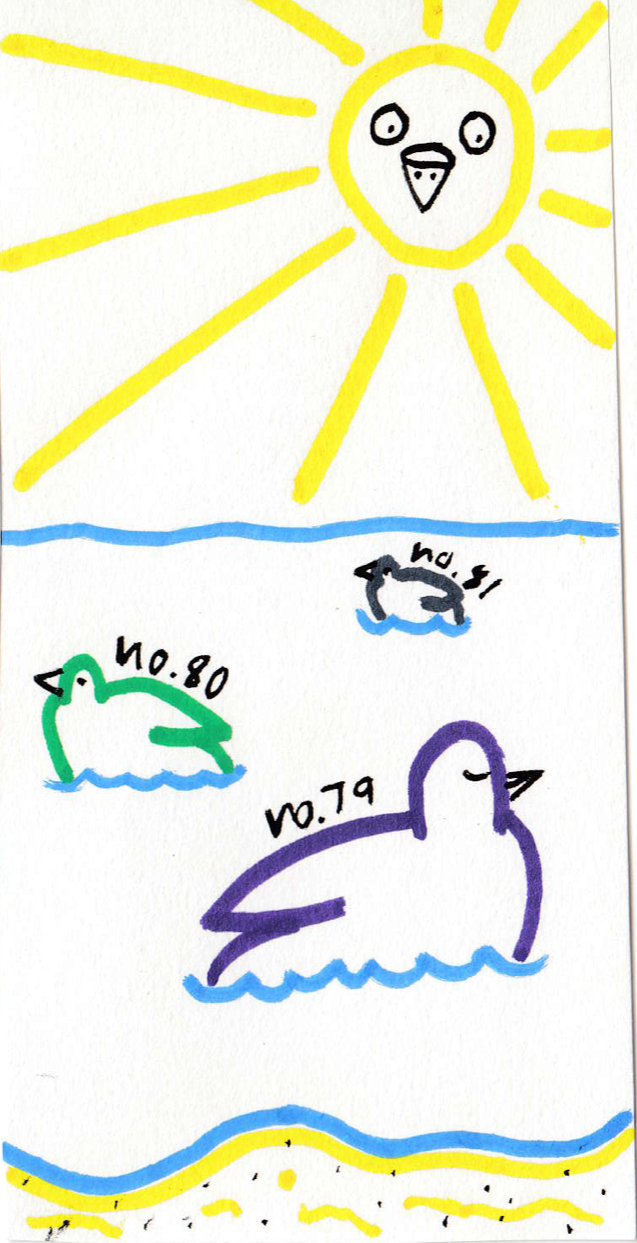 no.81
no.80
no.79